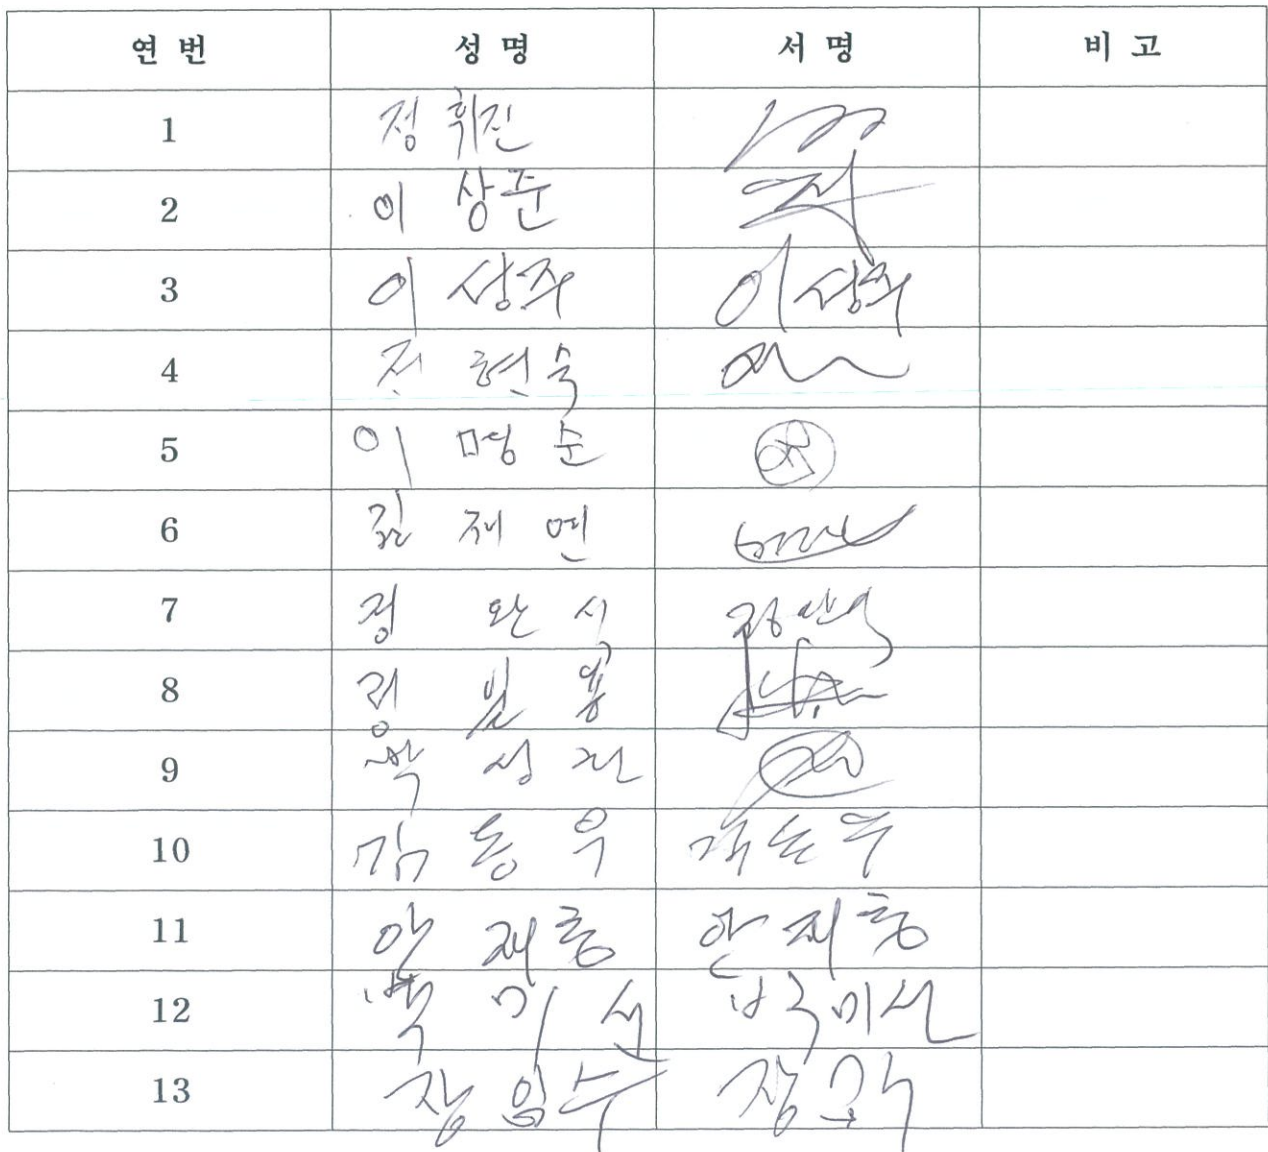 연 번 성 명 서 명 비 고
1 정 휘진
2 이 상준
3 이 상주 이상주
4 전 현숙
5 이 명 순
6 김 재 연
7 정 완 식 정완식
8 정
9 박 성 진
10 김 동 우 김동우
11 안 재홍 안재홍
12 박 미 선 박미선
13 장 임수